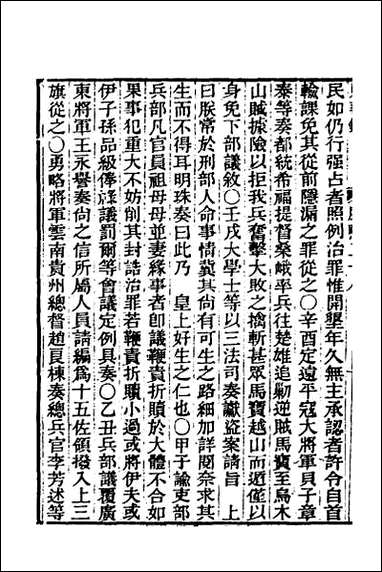 民如仍行强占者照例治罪惟開墾年久無主承認者許令自首
輸課免其從前隱漏之罪從之○辛酉定遠平寇大將軍貝子章
泰等奏都統希福提督桑峨平兵往楚雄追勦逆賊馬寶至烏木
山賊據險以拒我兵奮擊大敗之擒斬甚眾馬寶越山而遁僅以
身免下部議敘○壬戌大學士等以三法司奏讞盜案請旨　上
曰朕常於刑部人命事情冀其尚有可生之路細加詳閱奈求其
生而不得耳明珠奏曰此乃　皇上好生之仁也○甲子諭吏部
兵部凡官員祖母母並妻緣事者卽議鞭責折贖於大體不合如
果事犯重大不妨削其封誥治罪若鞭責折贖小過或將伊夫或
伊子孫品級俸祿議罰爾等會議定例具奏○乙丑兵部議覆廣
東將軍王永譽奏尚之信所屬人員請編爲十五佐領撥入上三
旗從之○勇略將軍雲南貴州總督趙良棟奏總兵官李芳述等